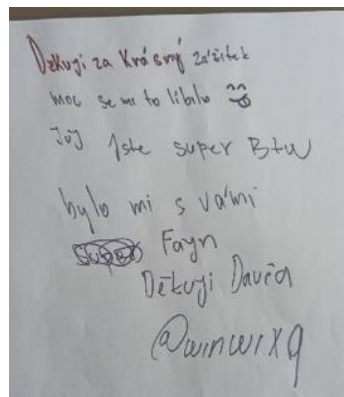 Děkuji za Krásný zážitek
moc se mi to líbilo
Jůj Jste super Btw
bylo mi s vámi
super Fayn
Děkuji Davča
@winwixq